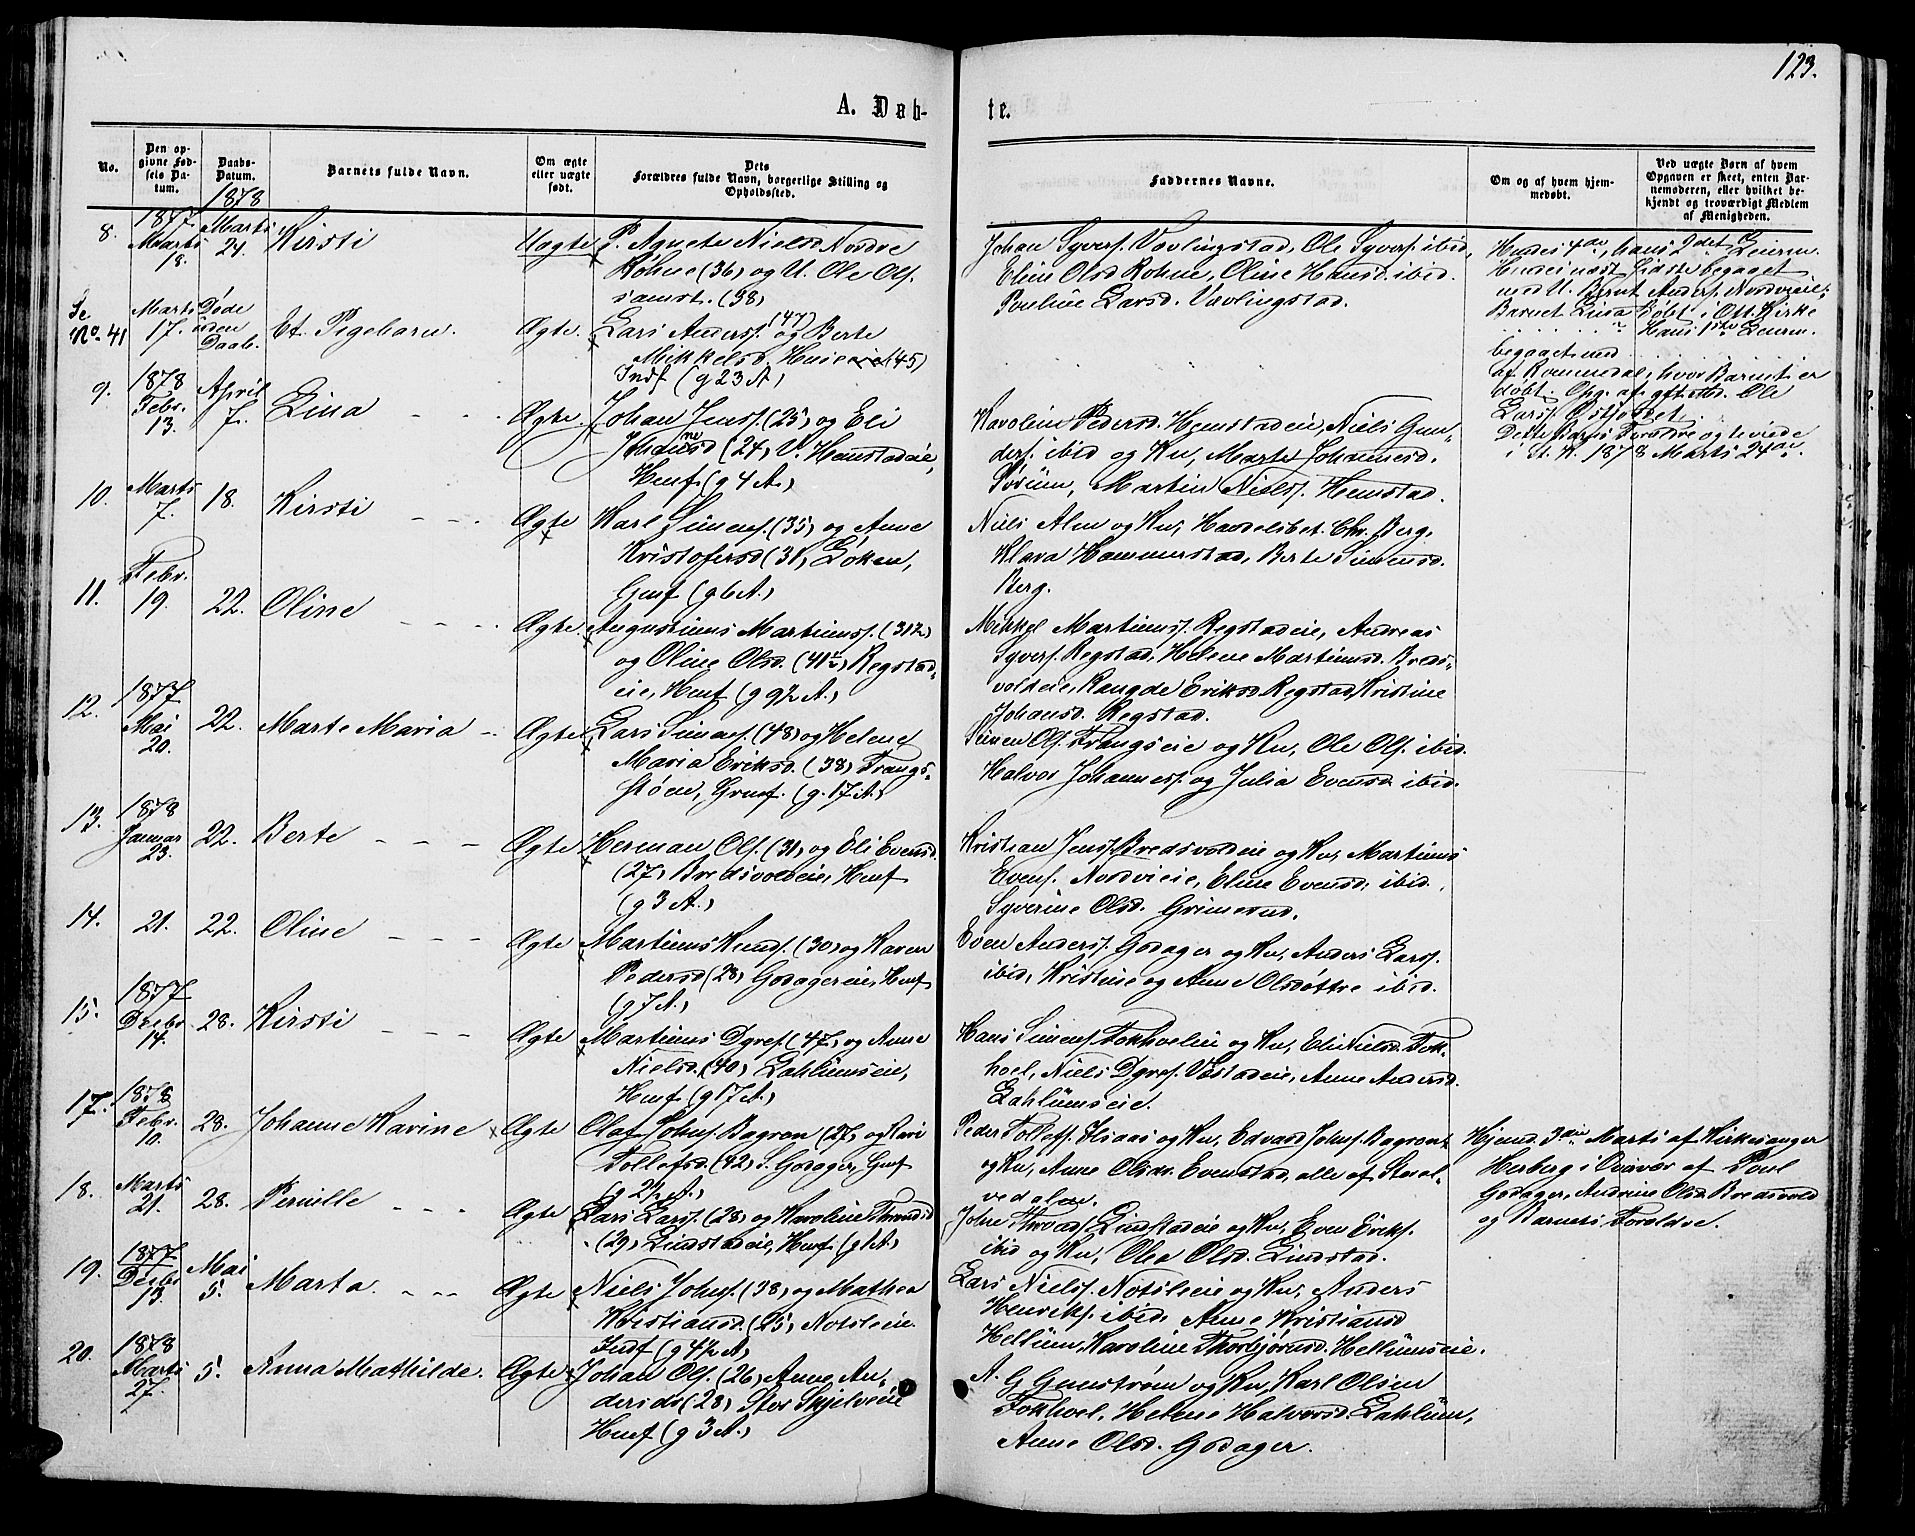 123.
A. Døb-
te.
No.
Den op-
givne Fød-
sels Da-
tum.
Daabs-
Datum.
1878
Barnets fulde Navn.
Om ægte
eller uægte
født.
Dets
Forældres fulde Navn, borgerlige Stilling og
Opholdssted.
Faddernes Navne.
Om og af hvem hjem-
medøbt.
Ved uægte Børn af hvem
Opgaven er skeet, enten Bar-
nemoderen, eller hvilket be-
kjendt og troværdigt Medlem
af Menigheden.
8.
1877
Marts
18.
Marts
24.
Kirsti
Uægte
P. Agnete Nielsd. Nordre
Rohne (36) og U. Ole Ols.
samst. (38)
Johan Syvers. Vavlingstad, Ole Syvers. ibid,
Eline Olsd Rohne, Oline Hansd. ibid.
Pauline Larsd. Vavlingstad.
Hendes 4de, hans 2det Leierm.
Hendes næst sidste begaaet
med U. Bernt Anders. Nordvieie;
Barnet Lina døbt i Ott. Kirke
Hans 1ste Leierm.
begaaet med
af Rommedal, hvor Barnet er
døbt. Opg. af gft. sbd. Ole
Lars.
Dette Barns Forældre og viede
i St. K. 1878 Marts 24de.
Se
No. 41
Marts
17.
Døde
uden
Daab.
Et Pigebarn.
Ægte.
Lars Anders. (47) og Berte
Mikkelsd. Huseeie (45)
Indf (g 23 A)
9.
1878
Febr.
13.
April
7.
Lina
Ægte.
Johan Jens. (25) og Eli
Johannesd (24) V. Hemstadeie,
Husf (g 4 A.)
Karoline Pedersd. Hemstadeie, Niels Gun-
ders. ibid og Ku, Marte Johannesd.
Sørum, Martin Niels. Hemstad.
10.
Marts
7.
18.
Kirsti
Ægte
Karl Simens. (35) og Anne
Kristofersd (31) Løken,
Gmf (g 6 A.)
Niels Alm og Ku, Handelsbet. Chr. Berg,
Klara Hammerstad, Berte Simensd.
Berg.
11.
Febr.
19.
22.
Oline
Ægte.
Augustinus Martinus. (31½)
og Oline Olsd. (41½) Regstad-
eie, Husf (g 9½ A.)
Mikkel Martinus. Regstadeie, Andreas
Syvers. Regstad, Helene Martinusd. Breds-
voldeie, Rangde Eriksd Regstad, Kristine
Johansd. Regstad.
12.
1877
Mai
20.
22.
Marte Maria
Ægte
Lars Simens. (48) og Helene
Maria Eriksd. (38) Frangs-
støen, Grmf. (g. 17 A.)
Simen Ols. Frangseie og Ku, Ole Ols. ibid.
Halvor Johannes. og Julia Evensd. ibid.
13.
1878
Januar
23.
22.
Berte
Ægte
Herman Ols. (31) og Eli Evensd.
(27) Bredsvoldeie, Husf.
(g 3 A.)
Kristian Jens. Bredsvoldeie og Ku, Martinus
Evens. Nordvieie, Eline Evensd. ibid,
Syverine Olsd. Grimerud.
14.
21.
22.
Oline
Ægte
Martinus Knuds. (30) og Karen
Pedersd (28) Godagereie, Husf
(g 7 A.)
Even Anders. Godager og Ku, Anders Lars.
ibid, Kristine og Anne Olsdøttre ibid.
15.
1877
Decbr
14.
28.
Kirsti
Ægte
Martinus Dgres. (47) og Anne
Nielsd. (40) Lahlumseie,
Husf (g 17 A.)
Hans Simens. Tokholeie og Ku, Eli Nielsd. Tok-
hol, Niels Dgres. Vestadeie, Anne Andersd.
Lahlumseie.
17.
1878
Febr.
10.
28.
Johanne Karine
Ægte
Olaf Johns. Bagron (27) og Kari
Tollefsd. (42) S. Godager, Gmf
(g 2½ A.)
Peder Tollefs. Hsaas og Ku, Edvard Johns. Bagron
og Ku, Anne Olsdr. Evenstad, alle af Storel-
vedalen.
Hjemd. 3die Marts af Kirkesanger
Herberg i Overvær af Poul
Godager, Andrine Olsd. Bredsvold
og Barnets Forældre.
18.
Marts
21.
28.
Pernille
Ægte
Lars Lars. (28) og Karoline Throndsd
(29) Lindstadeie, Husf. (g 1 A.)
Johne Thronds. Lindstadeie og Ku, Even Eriks.
ibid og Ku, Olea Olsd. Lindstad.
19.
1877
Decbr
13.
Mai
5.
Marta.
Ægte
Niels Johns. (38) og Mathea
Kristiansd. (25) Notsleeie
Indf (g 4½ A)
Lars Niels. Notsleeie og Ku, Anders
Henriks. ibid. Anne Kristiansd
Hellum, Karoline Thorbjørnsd. Hellumseie.
20.
1878
Marts
27.
5.
Anna Mathilde.
Ægte
Johan Ols. (26) Anne An-
dersd (28) Stor Skjelveie
Husf (g 3 A.)
A. G. Gunstrøm og Ku, Karl Olsen
Tokhol, Helene Halvorsd. Lahlum,
Anne Olsd. Godager.